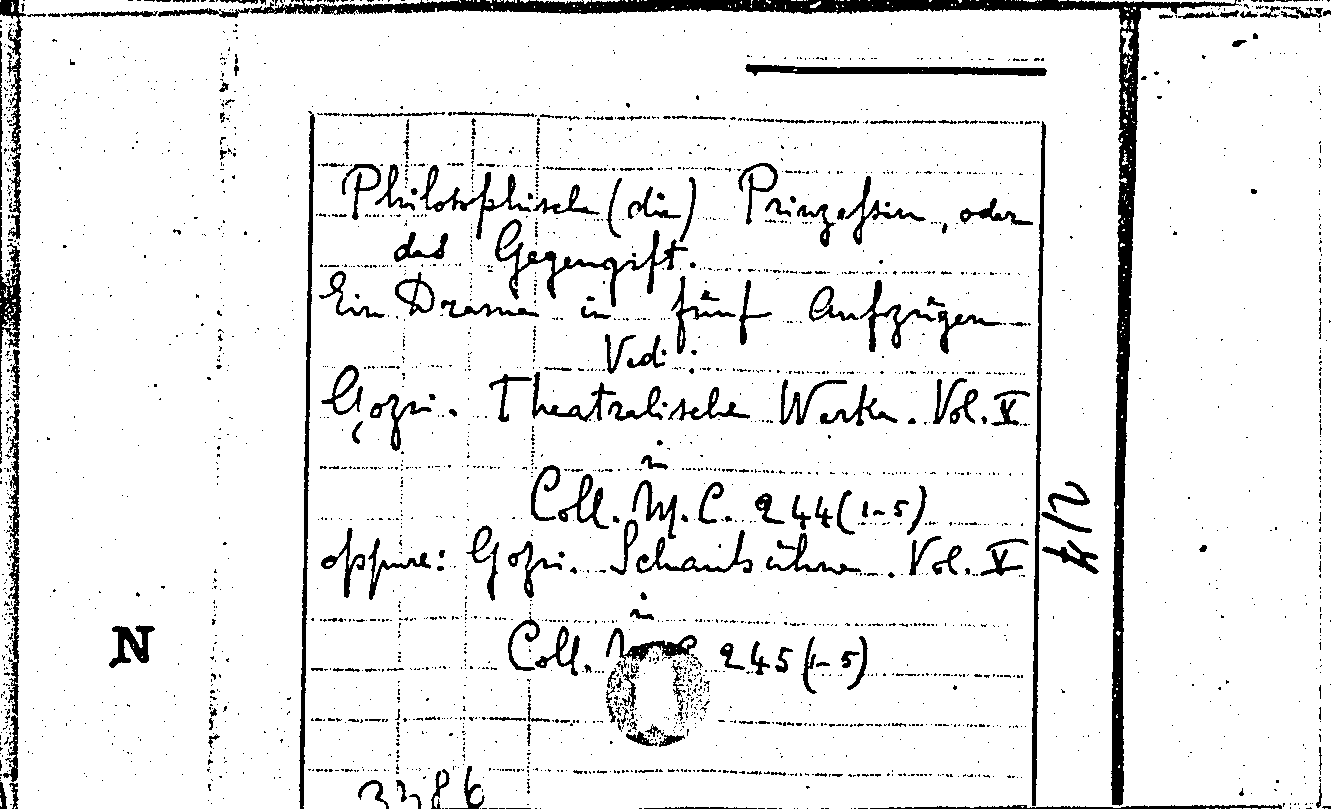 Philosophische (die) Prinzessin, oder
das Gegengift.
Ein Drama in fünf Aufzügen
Vedi:
Gozzi. Theatralische Werke. Vol. V
in
Coll. M. C. 244 (1-5)
oppure: Gozzi. Schaubühne. Vol. V
in
Coll. 245 (1-5)
N
3386